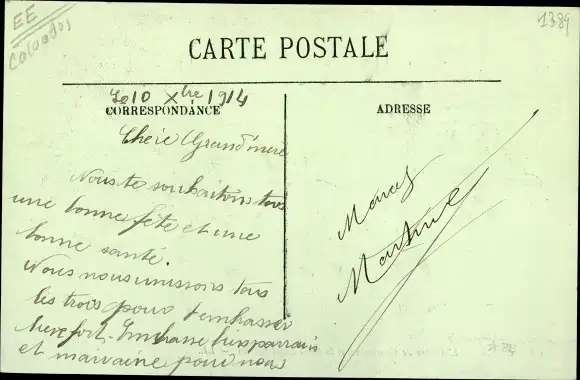 EE
Calvados
1389
CARTE POSTALE
Le 10 Xbre 1914
CORRESPONDANCE
ADRESSE
Chère Grand'mère
Nous te souhaitons tous
une bonne fête et une
bonne santé.
Nous nous unissons tous
les trois pour t'embrasser
bien fort. Embrasse bien parrain
et marraine pour nous
Marcel